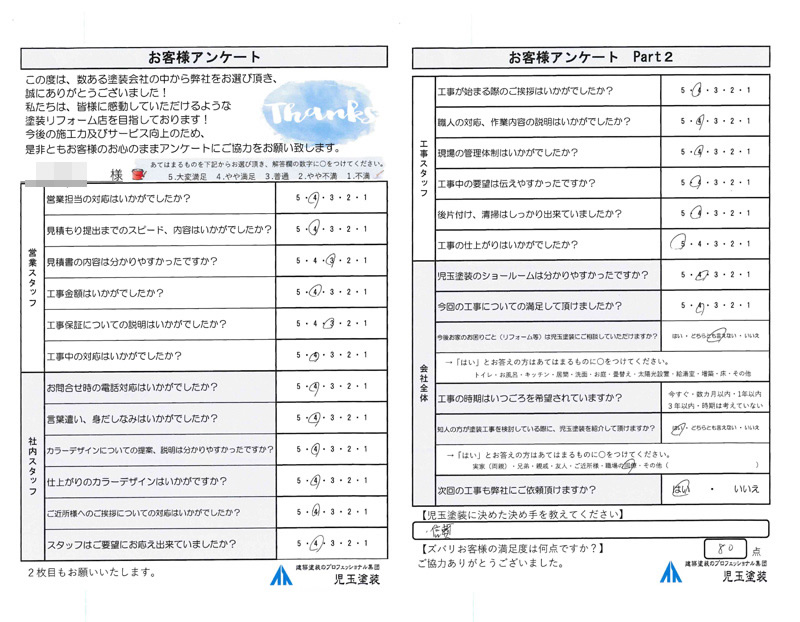 お客様アンケート
この度は、数ある塗装会社の中から弊社をお選び頂き、
誠にありがとうございました！
私たちは、皆様に感動していただけるような
塗装リフォーム店を目指しております！
今後の施工力及びサービス向上のため、
是非ともお客様のお心のままアンケートにご協力をお願い致します。
Thanks
あてはまるものを下記からお選び頂き、解答欄の数字に○をつけてください。
様
5.大変満足 4.やや満足 3.普通 2.やや不満 1.不満
営業スタッフ
営業担当の対応はいかがでしたか？ 5・4・3・2・1
見積もり提出までのスピード、内容はいかがでしたか？ 5・4・3・2・1
見積書の内容は分かりやすかったですか？ 5・4・3・2・1
工事金額はいかがでしたか？ 5・4・3・2・1
工事保証についての説明はいかがでしたか？ 5・4・3・2・1
工事中の対応はいかがでしたか？ 5・4・3・2・1
社内スタッフ
お問合せ時の電話対応はいかがでしたか？ 5・4・3・2・1
言葉遣い、身だしなみはいかがでしたか？ 5・4・3・2・1
カラーデザインについての提案、説明は分かりやすかったですか？ 5・4・3・2・1
仕上がりのカラーデザインはいかがですか？ 5・4・3・2・1
ご近所様へのご挨拶についての対応はいかがでしたか？ 5・4・3・2・1
スタッフはご要望にお応え出来ていましたか？ 5・4・3・2・1
2枚目もお願いいたします。
建築塗装のプロフェッショナル集団
児玉塗装
お客様アンケート Part2
工事スタッフ
工事が始まる際のご挨拶はいかがでしたか？ 5・4・3・2・1
職人の対応、作業内容の説明はいかがでしたか？ 5・4・3・2・1
現場の管理体制はいかがでしたか？ 5・4・3・2・1
工事中の要望は伝えやすかったですか？ 5・4・3・2・1
後片付け、清掃はしっかり出来ていましたか？ 5・4・3・2・1
工事の仕上がりはいかがでしたか？ 5・4・3・2・1
会社全体
児玉塗装のショールームは分かりやすかったですか？ 5・4・3・2・1
今回の工事についての満足して頂けましたか？ 5・4・3・2・1
今後お家のお困りごと（リフォーム等）は児玉塗装にご相談していただけますか？ はい・どちらとも言えない・いいえ
→「はい」とお答えの方はあてはまるものに○をつけてください。
トイレ・お風呂・キッチン・居間・洗面・お庭・畳替え・太陽光設置・給湯室・増築・床・その他
工事の時期はいつごろを希望されていますか？ 今すぐ・数カ月以内・1年以内
3年以内・時期は考えていない
知人の方が塗装工事を検討している際に、児玉塗装を紹介して頂けますか？ はい・どちらとも言えない・いいえ
→「はい」とお答えの方はあてはまるものに○をつけてください。
実家（両親）・兄弟・親戚・友人・ご近所様・職場の同僚・その他（ ）
次回の工事も弊社にご依頼頂けますか？ はい ・ いいえ
【児玉塗装に決めた決め手を教えてください】
・信頼
【ズバリお客様の満足度は何点ですか？】 80 点
ご協力ありがとうございました。
建築塗装のプロフェッショナル集団
児玉塗装